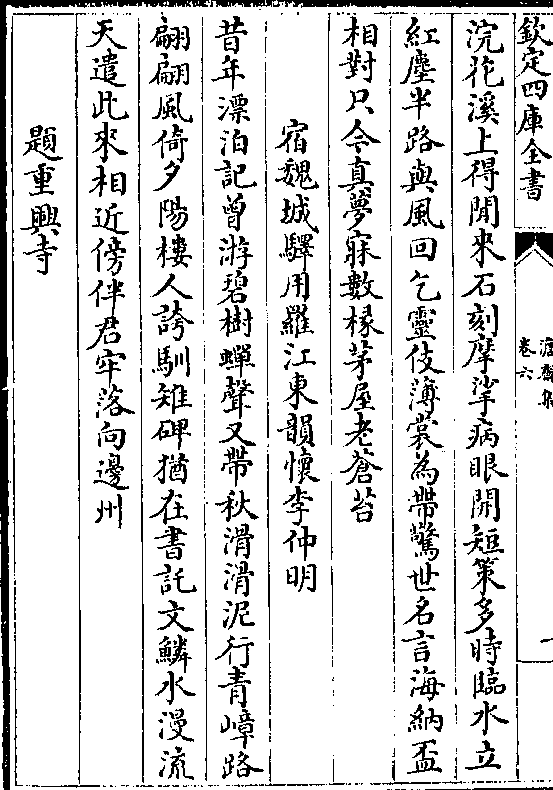 欽定四庫全書
卷六
浣花溪上得閒來石刻摩挲病眼開短策多時臨水立
紅塵半路與風回乞靈伎薄裳為帶驚世名言海納盃
相對只今真夢寐數椽茅屋老蒼苔
宿魏城驛用羅江東韻懷李仲明
昔年漂泊記曾游碧樹蟬聲又帶秋滑滑泥行青嶂路
翩翩風倚夕陽樓人誇馴雉碑猶在書託文鱗水漫流
天遣此來相近傍伴君牢落向邊州
題重興寺